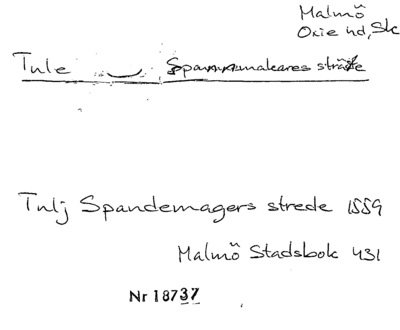 Malmö
Oxie hd, Sk
Tule Spannmakares sträte
Tulj Spandemagers strede 1559
Malmö Stadsbok 431
Nr 18737